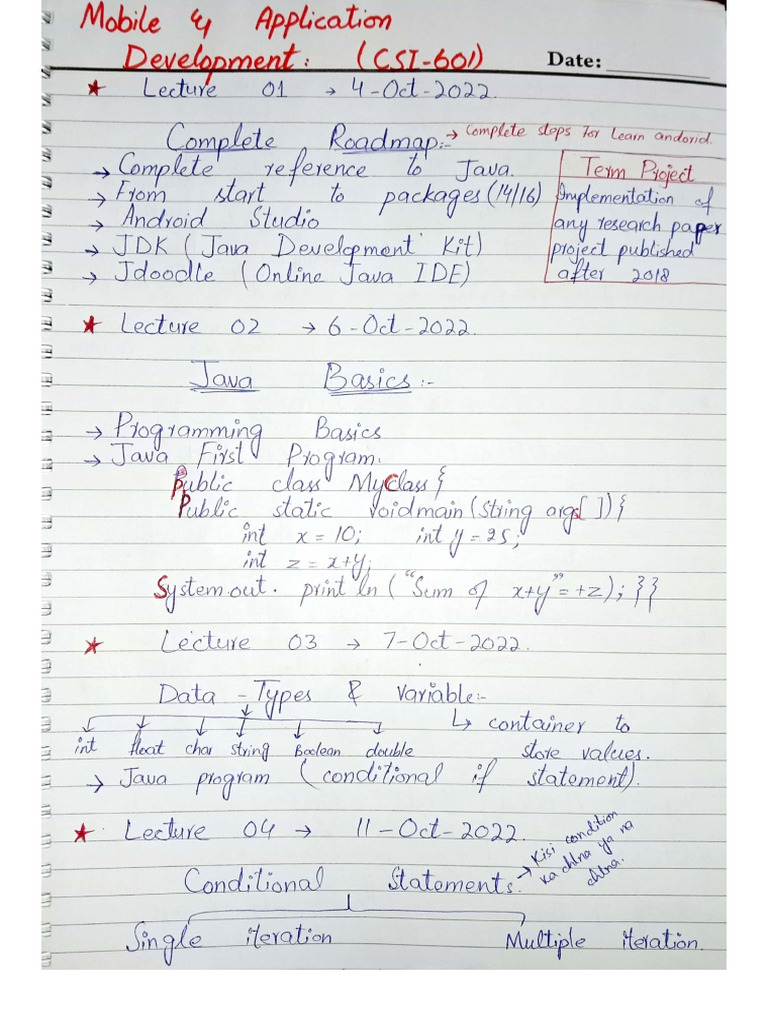 Mobile & Application
Development: (CSI-601)
Date:
* Lecture 01 → 4-Oct-2022.
Complete Roadmap:- → Complete steps for Learn andorid.
→ Complete reference to Java.
→ From start to packages (14/16)
→ Android Studio
→ JDK (Java Development Kit)
→ Jdoodle (Online Java IDE)
Term Project
Implementation of
any research paper
project published
after 2018
* Lecture 02 → 6-Oct-2022.
Java Basics:-
→ Programming Basics
→ Java First Program.
Public class MyClass{
Public static voidmain(String args[ ]){
int x = 10; int y = 25;
int z = x+y;
System.out. print ln ("Sum of x+y"=+z); }}
* Lecture 03 → 7-Oct-2022.
Data - Types & variable:-
↳ container to
store values.
int float char string Boolean double
→ Java program (conditional if statement).
* Lecture 04 → 11-Oct-2022.
Conditional Statements.
→ Kisi condition
ka chlna ya na
chlna.
Single iteration Multiple iteration.